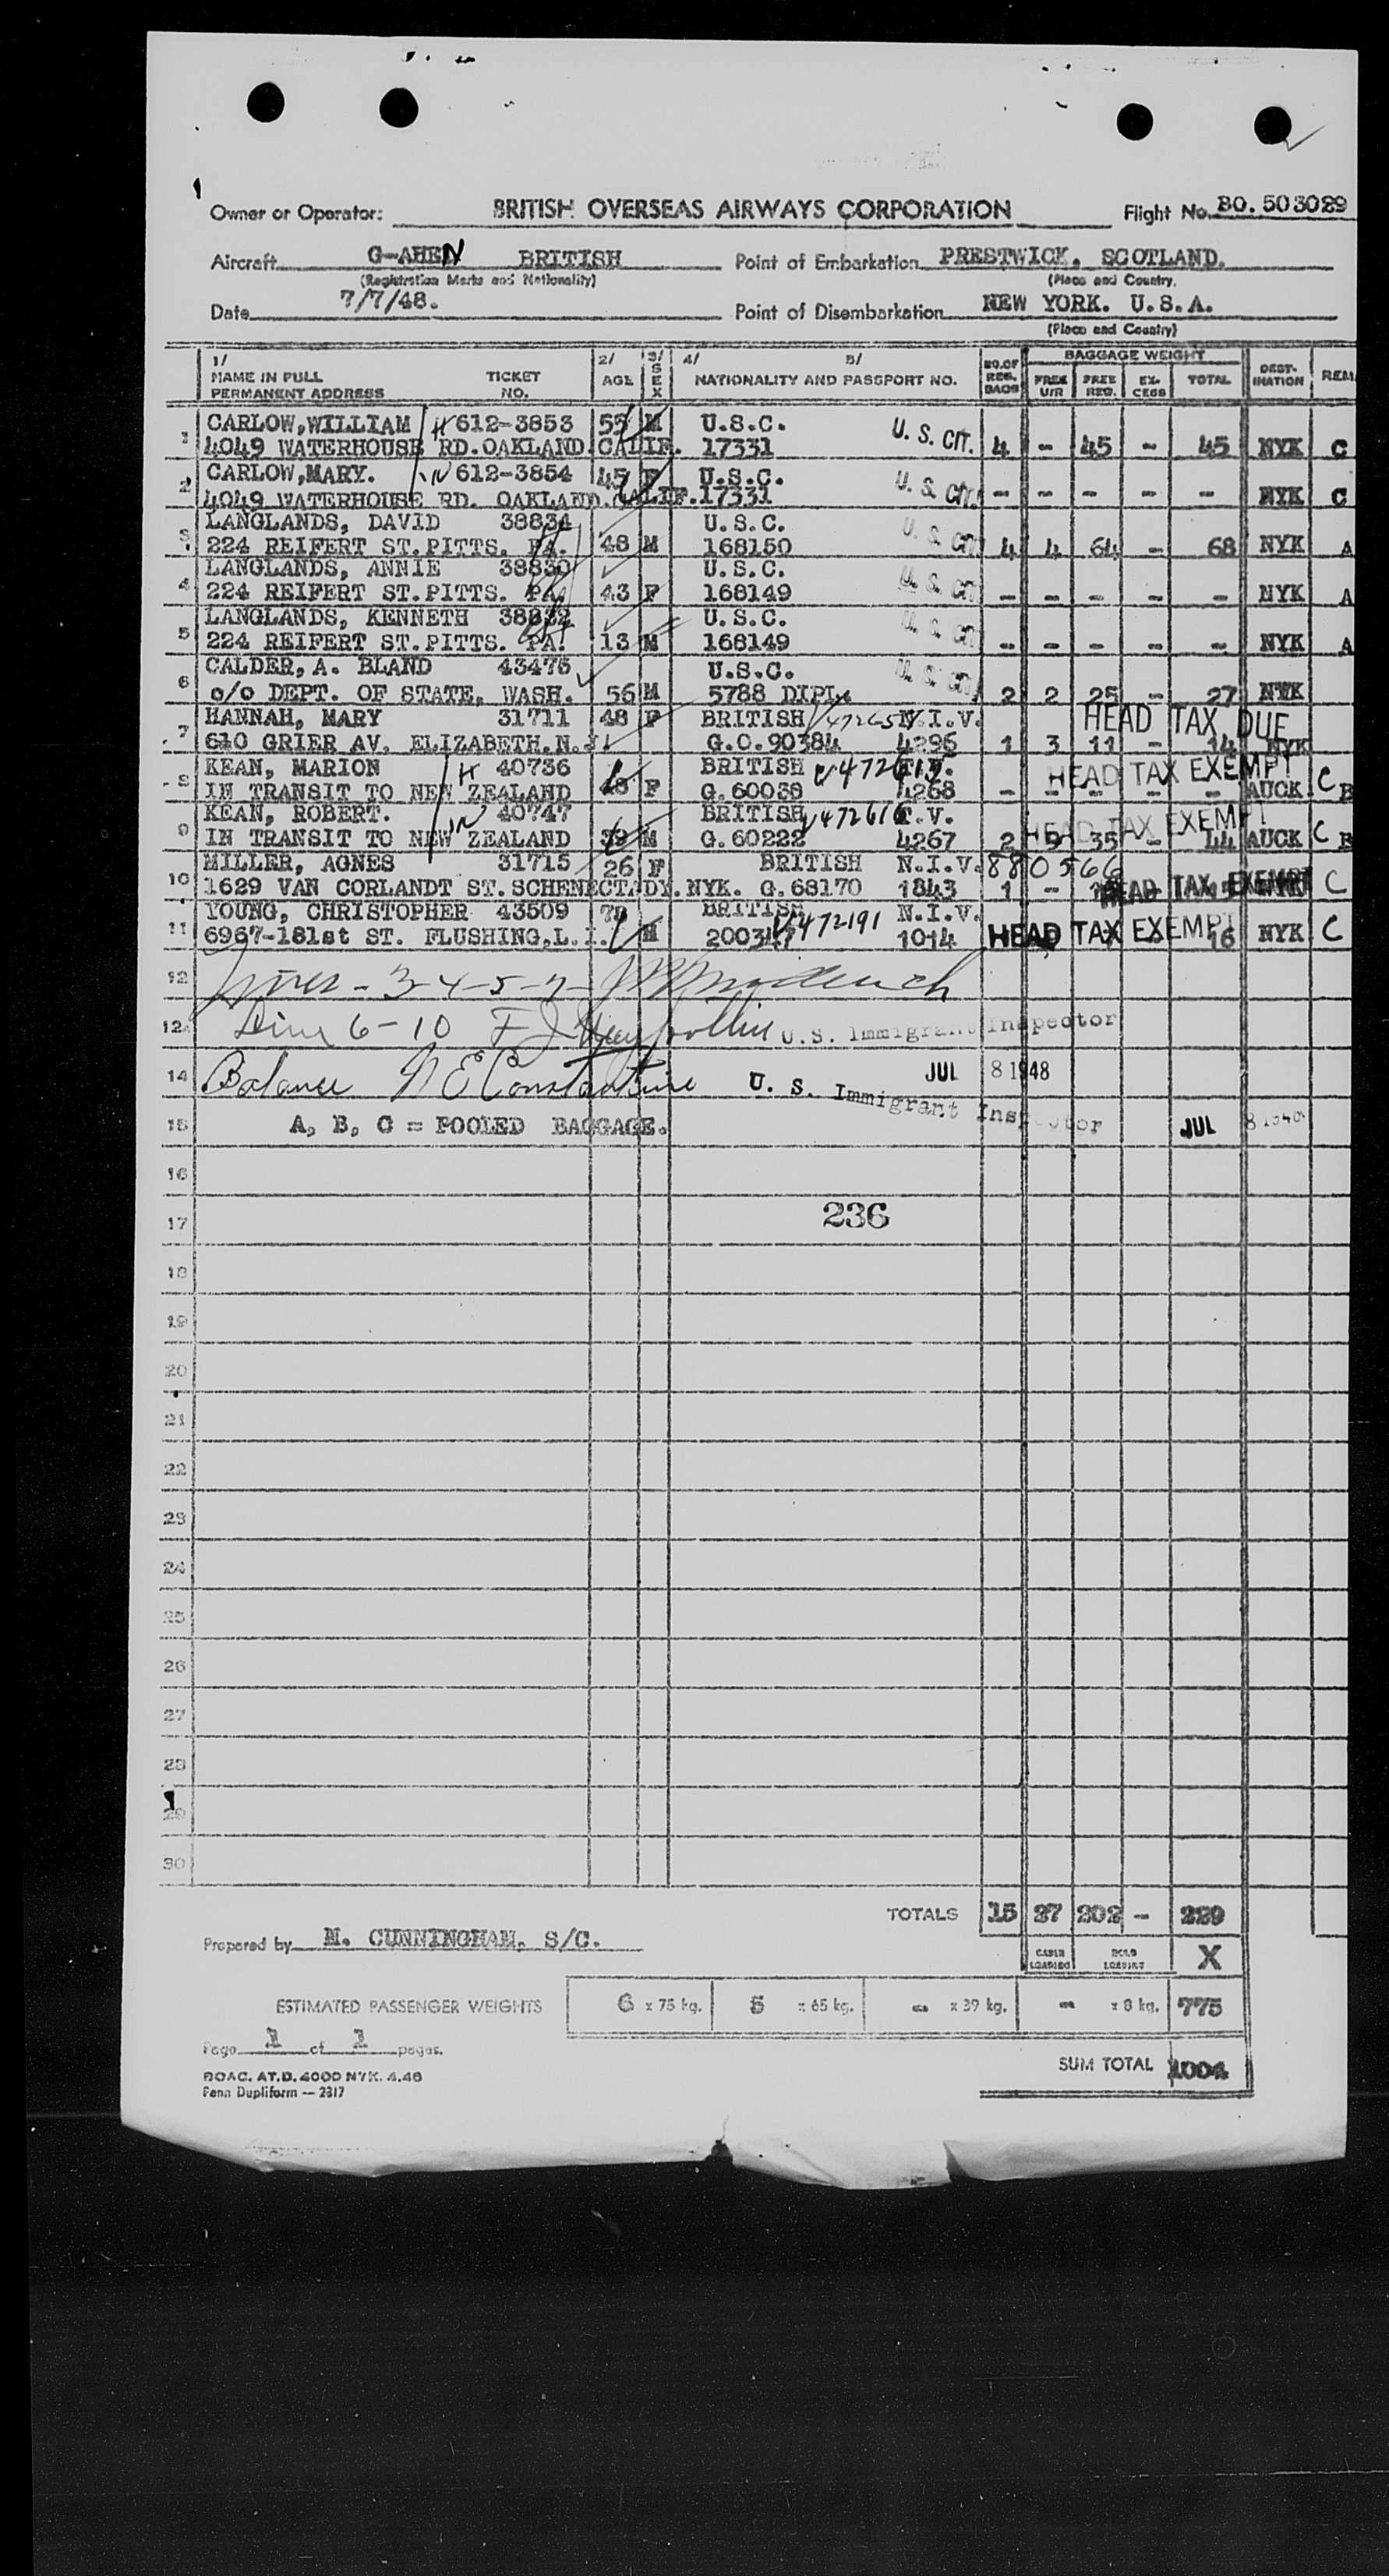 Owner or Operator: BRITISH OVERSEAS AIRWAYS CORPORATION Flight No. BO. 503029
Aircraft G-AHEN BRITISH Point of Embarkation PRESTWICK. SCOTLAND.
(Registration Marks and Nationality) (Place and Country.
Date 7/7/48. Point of Disembarkation NEW YORK. U.S.A.
(Place and Country)
1/ 2/ 3/ 4/ 5/ BAGGAGE WEIGHT
NAME IN FULL TICKET AGE SEX NATIONALITY AND PASSPORT NO. NO. OF REG. BAGS FREE U/R FREE REG. EX-CESS TOTAL DEST-INATION REM
PERMANENT ADDRESS NO.
1 CARLOW,WILLIAM H 612-3853 55 M U.S.C. U.S. CIT.
4049 WATERHOUSE RD.OAKLAND.CALIF. 17331 4 - 45 - 45 NYK C
2 CARLOW,MARY. W 612-3854 45 F U.S.C. U.S. CIT.
4049 WATERHOUSE RD. OAKLAND.CALIF.17331 - - - - - NYK C
3 LANGLANDS, DAVID 38834 U.S.C. U.S. CIT
224 REIFERT ST.PITTS. PA. 48 M 168150 4 4 64 - 68 NYK A
4 LANGLANDS, ANNIE 38830 U.S.C. U.S. CIT
224 REIFERT ST.PITTS. PA. 43 F 168149 - - - - - NYK A
5 LANGLANDS, KENNETH 38832 U.S.C. U.S. CIT
224 REIFERT ST.PITTS. PA. 13 M 168149 - - - - - NYK A
6 CALDER, A. BLAND 43475 U.S.C. U.S. CIT
c/o DEPT. OF STATE, WASH. 56 M 5788 DIPL. 2 2 25 - 27 NYK
7 HANNAH, MARY 31711 48 F BRITISH N.I.V. HEAD TAX DUE
610 GRIER AV. ELIZABETH.N.J. G.O.90384 4296 1 3 11 - 14 NYK
8 KEAN, MARION H 40736 BRITISH HEAD TAX EXEMPT
IN TRANSIT TO NEW ZEALAND F G.60039 4268 - - - - - AUCK C B
9 KEAN, ROBERT. W 40747 BRITISH V472616 T.V. HEAD TAX EXEMPT
IN TRANSIT TO NEW ZEALAND 39 M G.60222 4267 2 9 35 - 44 AUCK C B
10 MILLER, AGNES 31715 26 F BRITISH N.I.V. 880566
1629 VAN CORLANDT ST.SCHENECTADY.NYK. G.68170 1843 1 - HEAD TAX EXEMPT C
11 YOUNG, CHRISTOPHER 43509 BRITISH V472191 N.I.V.
6967-181st ST. FLUSHING,L.I. M 1014 HEAD TAX EXEMPT 16 NYK C
12 - 3-4-5-7-
12A 6-10 U.S. Immigrant Inspector
14 Balance N E Constantine JUL 8 1948
U. S. Immigrant Inspector
15 A, B, C = POOLED BAGGAGE. JUL 8 1948
16
236
17
18
19
20
21
22
23
24
25
26
27
28
29
30
TOTALS 15 27 202 - 229
Prepared by M. CUNNINGHAM, S/C. CABIN LOADING HOLD LOADING X
ESTIMATED PASSENGER WEIGHTS 6 x 75 kg. 5 x 65 kg. - x 39 kg. - x 8 kg. 775
Page 1 of 1 pages.
SUM TOTAL 1004
BOAC. AT.D. 4000 NYK. 4.48
Penn Dupliform — 2317